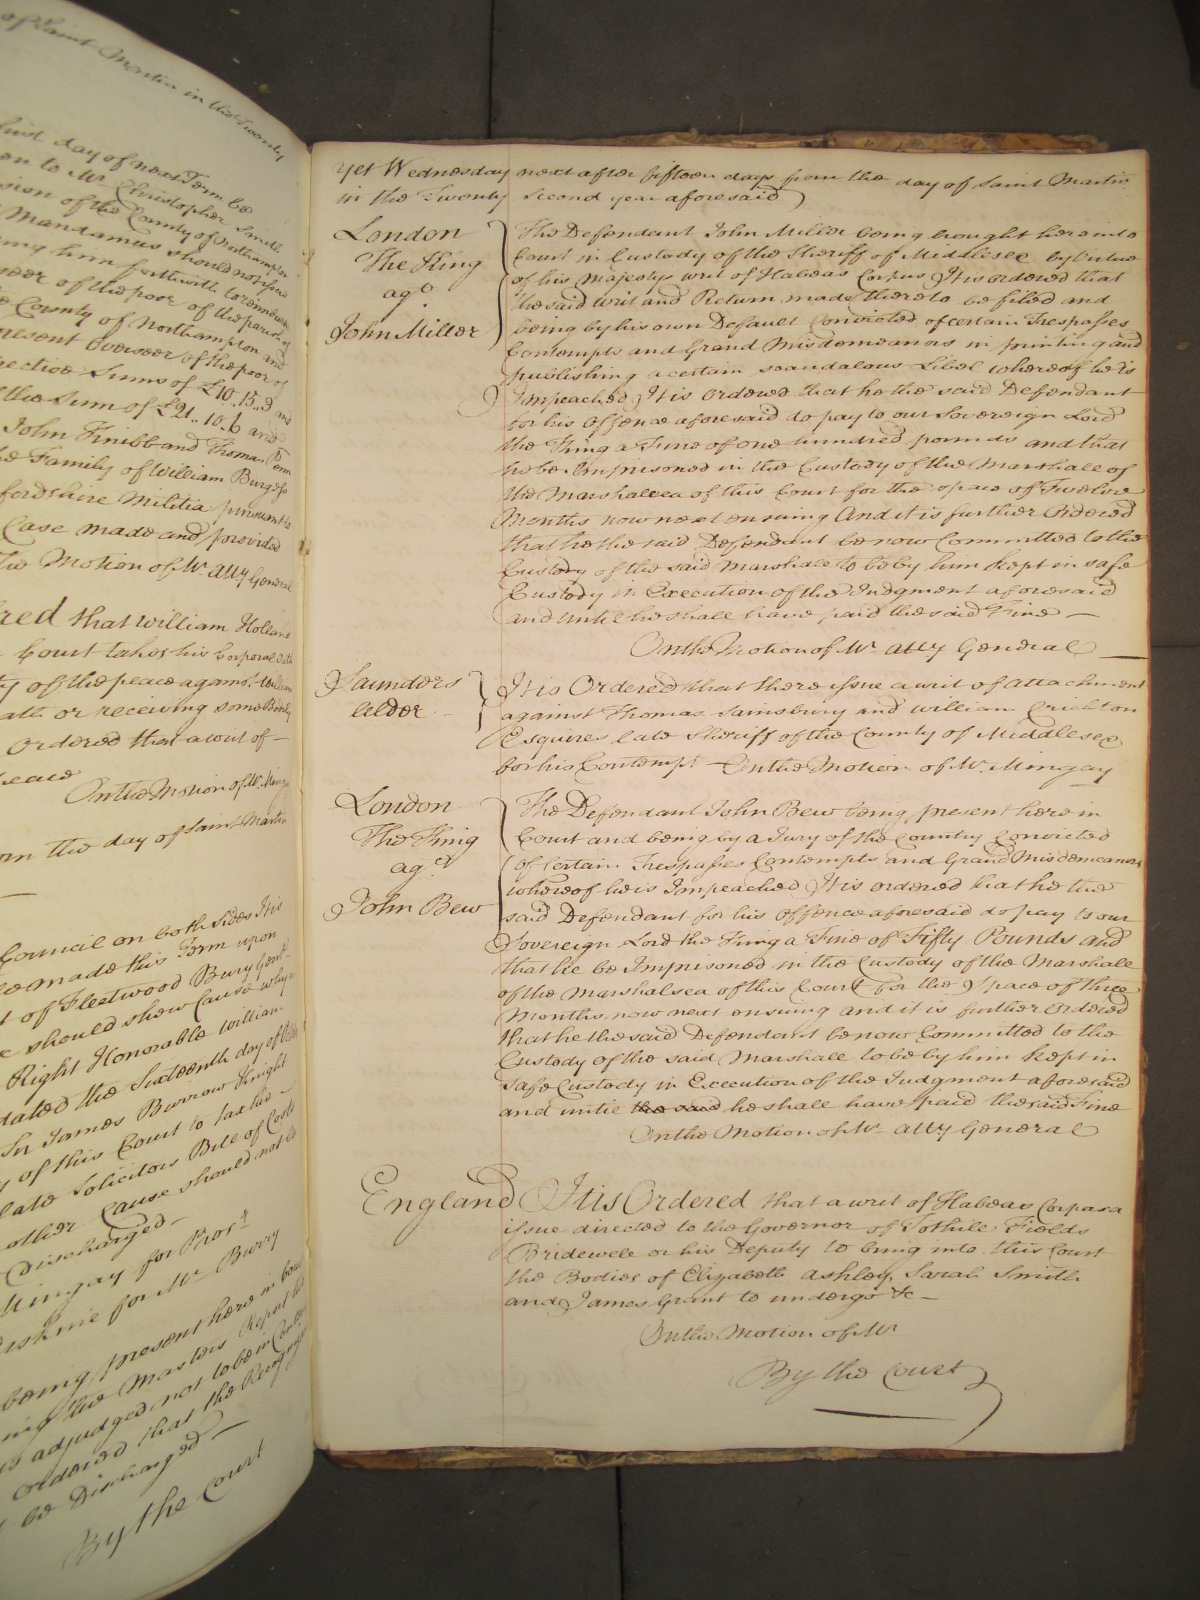 of Saint Martin in the Twenty
first day of next Term be
on to Mr. Christopher Smith
ision of the County of Northampton
Mandamus should not issue
ing him forthwith to reimburse
seer of the poor of the parish of
e County of Northampton and
resent Overseer of the poor of
pective Sums of £10..15..9 and
the Sum of £21..10..6 and
John Knibb and Thomas Penn
he Family of William Burgess
fordshire Militia pursuant to
Case made and provided
the Motion of Mr. Atty General
red that William Holland
Court takes his Corporal Oath
ty of the peace against William
ath or receiving some Bodily
Ordered that a writ of
peace
On the Motion of Mr. Mingay
om the day of Saint Martin
Council on both sides It is
e made this Term upon
t of Fleetwood Bury Gent.
e should shew Cause why
Right Honorable William
dated the Sixteenth day of
Sir James Burrow Knight
y of this Court to tax his
late Solicitors Bill of Costs
other Cause should not be
Discharged
Mingay for Pros.r
rskine for Mr. Burry
being present here in Court
ing the Masters Report
is adjudged not to be in Contempt
ordered that the Recognizance
be Discharged
By the Court
Yet Wednesday next after fifteen days from the day of Saint Martin
in the Twenty Second year aforesaid
London
The King
agt.
John Miller
The Defendant John Miller being brought here into
Court in Custody of the Sheriff of Middlesex by virtue
of his Majestys writ of Habeas Corpus It is ordered that
the said writ and Return made thereto be filed and
being by his own Default Convicted of certain Trespasses
Contempts and Grand Misdemeanors in printing and
publishing a certain scandalous Libel whereof he is
Impeached It is ordered that he the said Defendant
for his Offence aforesaid do pay to our Sovereign Lord
the King a Fine of one hundred pounds and that
he be Imprisoned in the Custody of the Marshall of
the Marshalsea of this Court for the space of Twelve
Months now next ensuing And it is further Ordered
that he the said Defendant be now Committed to the
Custody of the said Marshall to be by him kept in safe
Custody in Execution of the Judgment aforesaid
and until he shall have paid the said Fine
On the Motion of Mr. Atty General
Saunders
Elder
It is Ordered that there issue a writ of attachment
against Thomas Sainsbury and William Crichton
Esquires late Sheriff of the County of Middlesex
for his Contempt On the Motion of Mr. Mingay
London
The King
agt.
John Bew
The Defendant John Bew being present here in
Court and being by a Jury of the Country Convicted
of Certain Trespasses Contempts and Grand Misdemeanors
whereof he is Impeached It is ordered that he the
said Defendant for his offence aforesaid do pay to our
Sovereign Lord the King a Fine of Fifty Pounds and
that he be Imprisoned in the Custody of the Marshall
of the Marshalsea of this Court for the Space of three
Months now next ensuing and it is further ordered
that he the said Defendant be now Committed to the
Custody of the said Marshall to be by him kept in
safe Custody in Execution of the Judgment aforesaid
and until the said he shall have paid the said Fine
On the Motion of Mr. Atty General
England It is Ordered that a writ of Habeas Corpus a
issue directed to the Governor of Tothill Fields
Bridewell or his Deputy to bring into this Court
the Bodies of Elizabeth Ashley, Sarah Smith
and James Grant to undergo &c
On the Motion of Mr.
By the Court